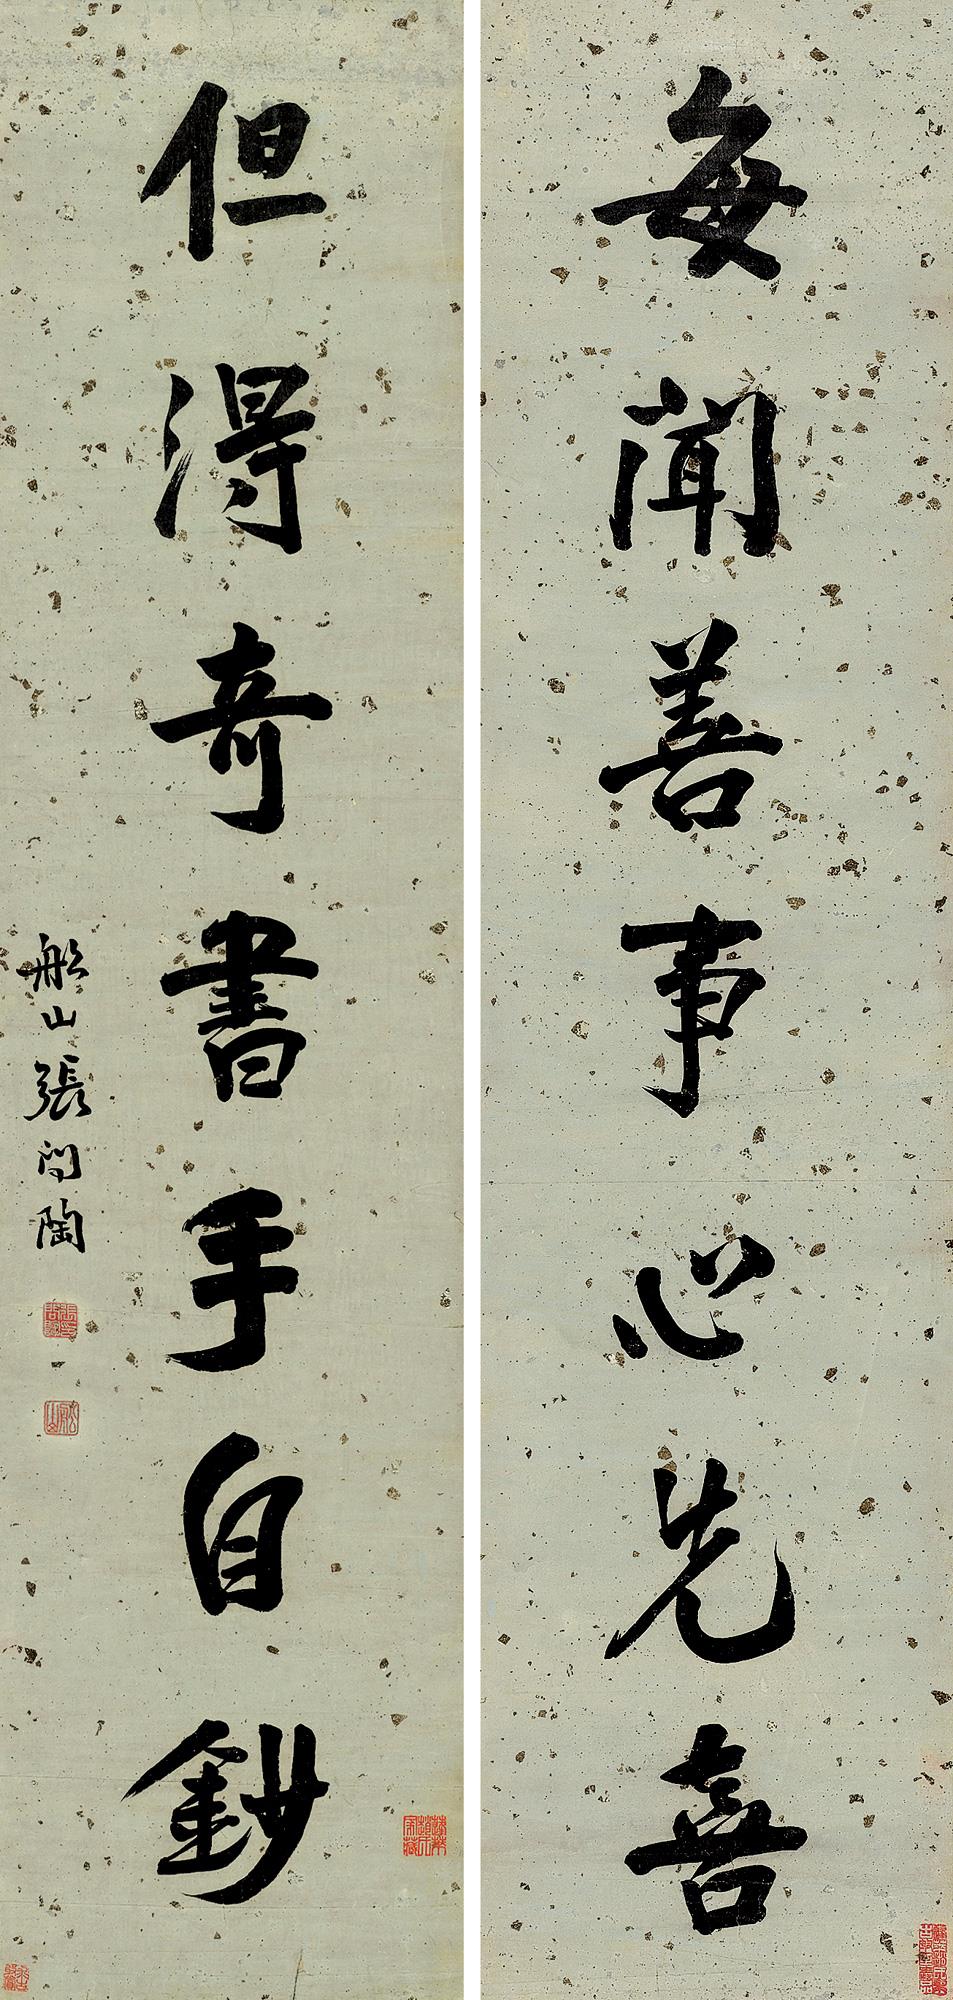 每聞善事心先喜
但得奇書手自鈔
船山張問陶